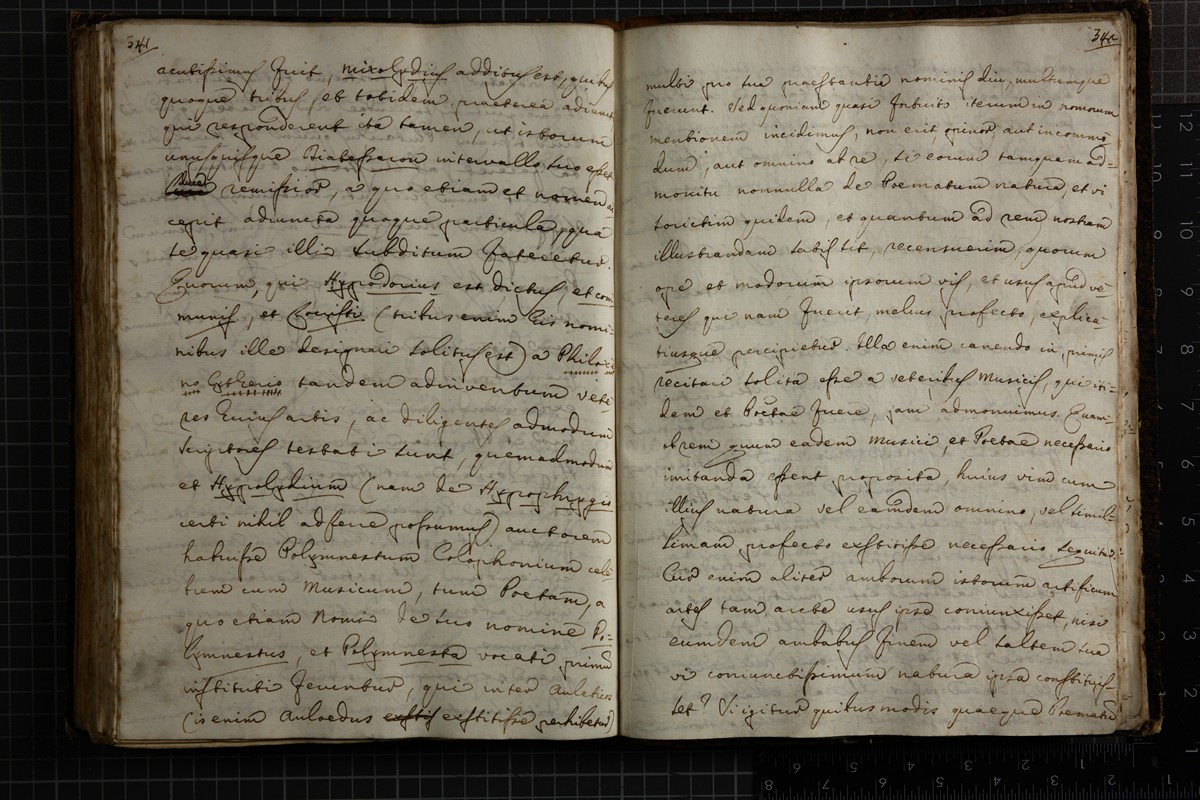 341
acutissimus fuit, mixolydius additus est, quibus
quoque tribus, et totidem praeterea adiuncti
qui responderent ita tamen, ut istorum
unusquisque Diatessaron intervallo suo esset
remissior, a quo etiam et nomen ac
cepit adiuncta quaque particula, qua
se quasi illis subditum fateretur.
Quorum, qui Hypodorius est dictus, et com
munis, et Locristi (tribus enim his nomi
nibus ille designari solitus est) a Philoxe
no Cytherio tandem adinventum vete
res huius artis, ac diligentes admodum
scriptores testati sunt, quemadmodum
et Hypolydium (nam de Hypophrygio
certi nihil adferre possumus) auctorem
habuisse Polymnestum Colophonium cele
brem cum Musicum, tum Poetam, a
quo etiam Nomi de suo nomine Po-
lymnestus, et Polymnesta vocati primum
instituti feruntur, qui inter auletices
(is enim Auloedus exstitisse perhibetur)
342
multi pro sua praestantia nominis diu, multumque
fuerunt. Sed quoniam quasi fortuito iterum in nomorum
mentionem incidimus, non erit, opinor aut incommo
dum, aut omnino ab re, si eorum tamquam ad-
monitu nonnulla de Poematum natura, et vi
strictim quidem, et quantum ad rem nostram
illustrandam sabis sit, recensuerim, quorum
ope et modorum ipsorum vis, et usus apud ve-
teres qui nam fuerit, melius profecto, explica-
tiusque percipietur. Illa enim canendo in primis
recitari solita esse a veteribus Musicis, qui iti-
dem et Poetae fuere, jam admonuimus. Quam-
obrem quum eadem Musici, et Poetae necessario
imitanda essent proposita, huius vim cum
illius natura vel eamdem omnino, vel simil-
limam profecto exstitisse necessario sequitur.
Cur enim aliter amborum istorum artificum
artes tam arcte usus ipse coniunxisset, nisi
eumdem ambabus finem vel saltem sua
vi coniunctissimum natura ipsa constituis-
set? Si igitur quibus modis quaeque Poemata